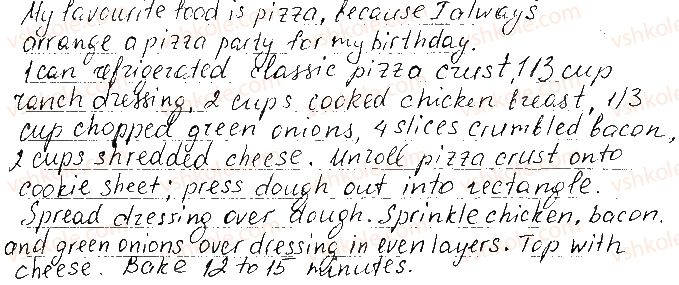 My favourite food is pizza, because I always
arrange a pizza party for my birthday.
1 can refrigerated classic pizza crust, 1/3 cup
ranch dressing, 2 cups cooked chicken breast, 1/3
cup chopped green onions, 4 slices crumbled bacon,
2 cups shredded cheese. Unroll pizza crust onto
cookie sheet; press dough out into rectangle.
Spread dressing over dough. Sprinkle chicken, bacon.
and green onions over dressing in even layers. Top with
cheese. Bake 12 to 15 minutes.